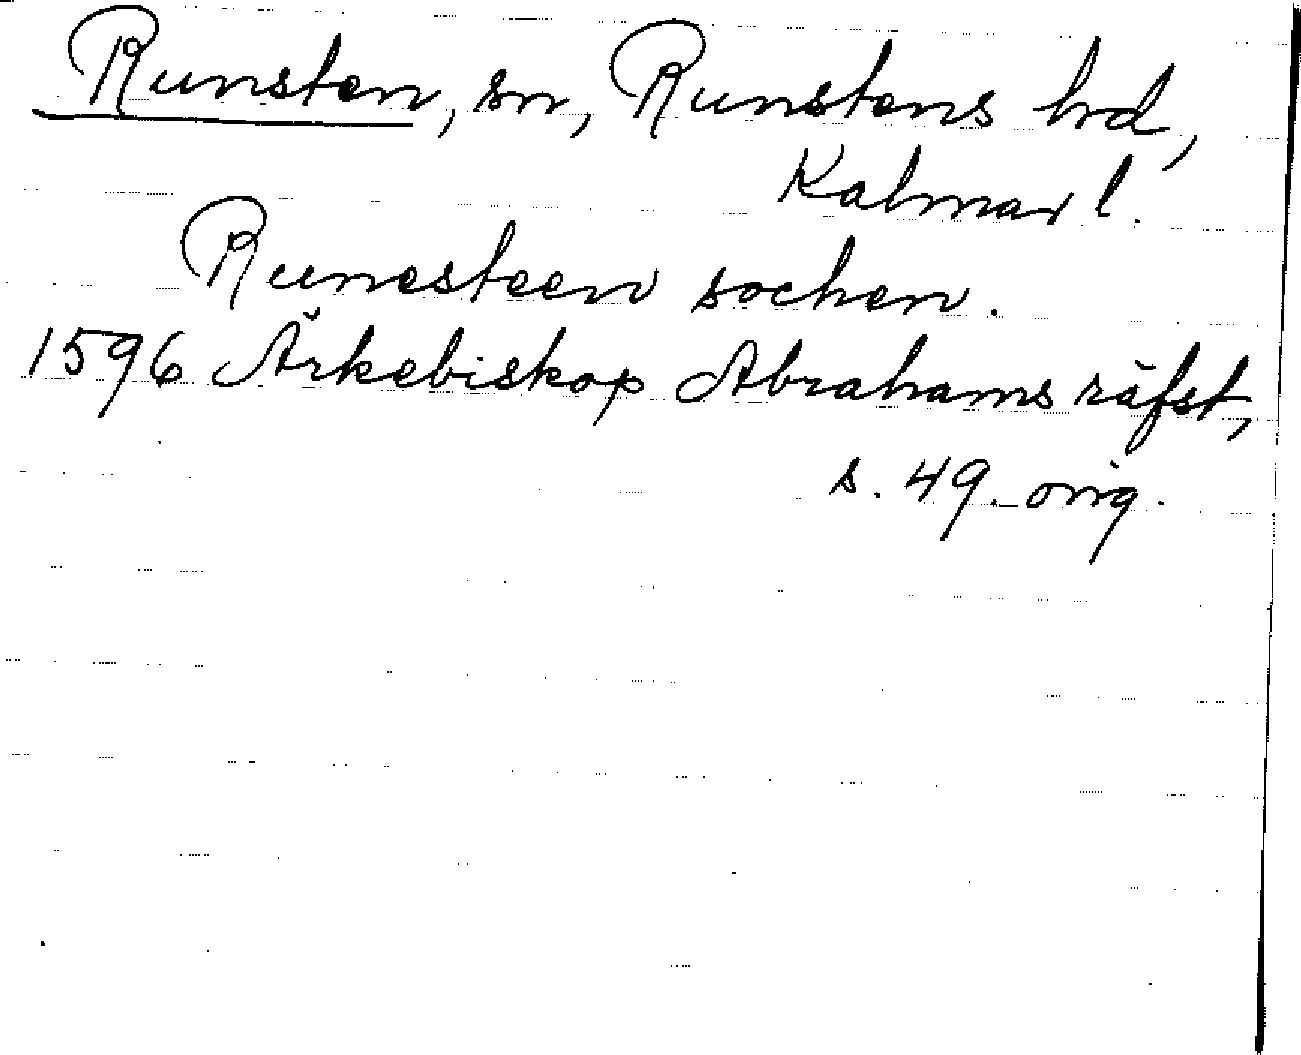 Runsten, sn, Runstens hd,
Kalmar l.
Runesteen sochen.
1596 Ärkebiskop Abrahams räfst,
s. 49. orig.